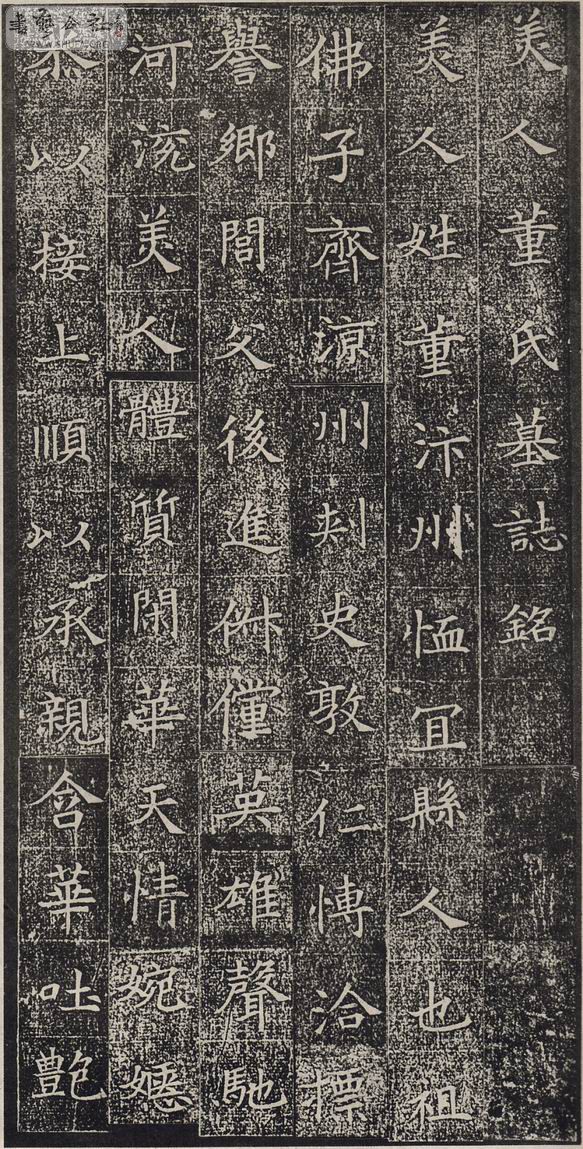 美人董氏墓誌銘
美人姓董汴州恤冝縣人也祖
佛子齊涼州刾史敦仁博洽摽
譽鄉閭父後進俶儻英雄聲馳
河沇美人體質閑華天情婉嫕
恭以接上順以承親含華吐艶
書藝公社